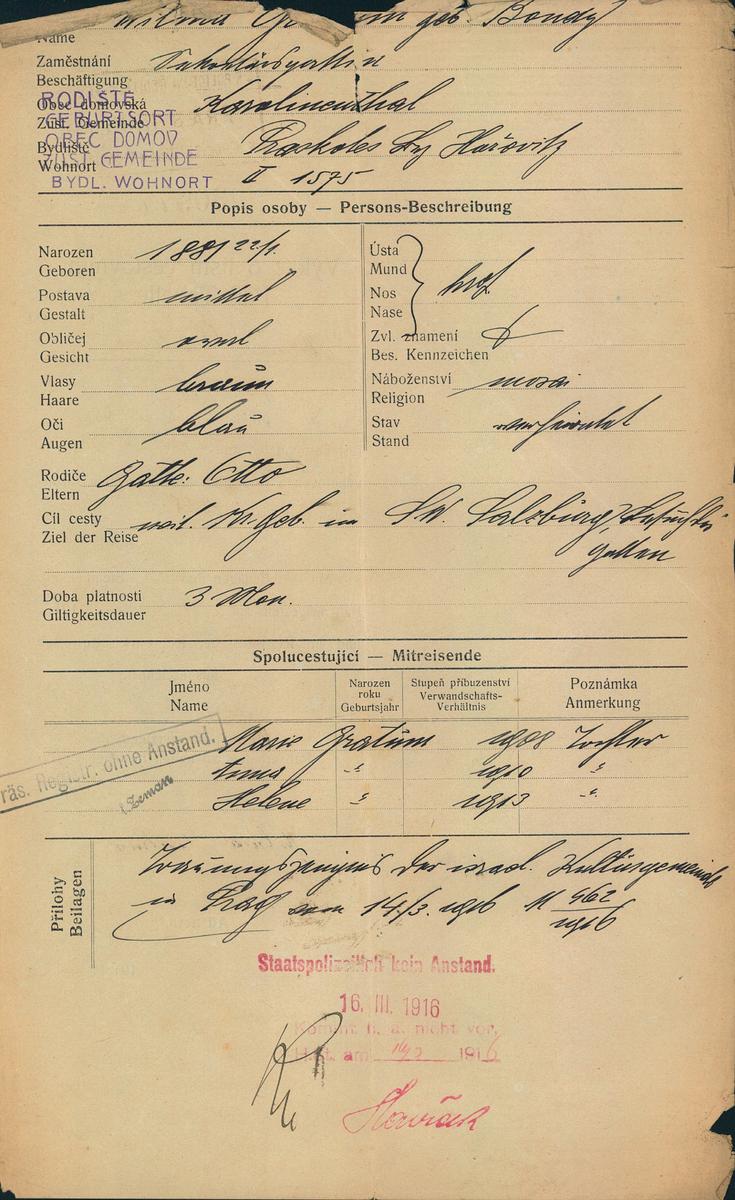 geb. Bondy
Name
Zaměstnání
Beschäftigung
RODIŠTĚ
Obec domovská Karolinenthal
GEBURTSORT
Zust. Gemeinde
OBEC DOMOV
Bydliště
ZUST. GEMEINDE
Wohnort II 1575
BYDL. WOHNORT
Popis osoby — Persons-Beschreibung
Narozen 1881 22/1.
Geboren
Postava mittel
Gestalt
Obličej oval
Gesicht
Vlasy braun
Haare
Oči blau
Augen
Ústa
Mund
Nos
Nase
Zvl. znamení
Bes. Kennzeichen
Náboženství mosai
Religion
Stav verheiratet
Stand
Rodiče Gatte: Otto
Eltern
Cíl cesty in Salzburg,
Ziel der Reise
Gatten
Doba platnosti 3 Mon.
Giltigkeitsdauer
Spolucestující — Mitreisende
Jméno
Name
Narozen
roku
Geburtsjahr
Stupeň příbuzenství
Verwandschafts-
Verhältnis
Poznámka
Anmerkung
Marie 1908 Tochter
1910 "
Helene " 1913 "
Präs. Registr. ohne Anstand.
Zeman
Přílohy
Beilagen
Trauungszeugnis der israel. Kultusgemeinde
in Prag vom 14./3. 1916 N 962
1916
Staatspolizeilich kein Anstand.
16. III. 1916
Kommt h. a. nicht vor.
H. St. am 16/3 1916